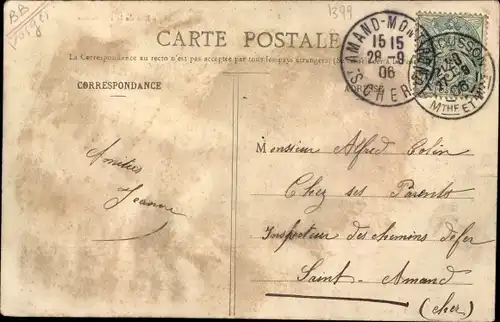 BB
1399
CARTE POSTALE
La Correspondance au recto n'est pas acceptée par tous les pays étrangers. (Se
CORRESPONDANCE
ADRESSE
AMAND-MON
15 15
29-9
06
CHER
MTHE ET
06
Amitiés
Jeanne
Monsieur Alfred Colin
Chez ses Parents
Inspecteur des chemins defer
Saint-Amand
(cher)